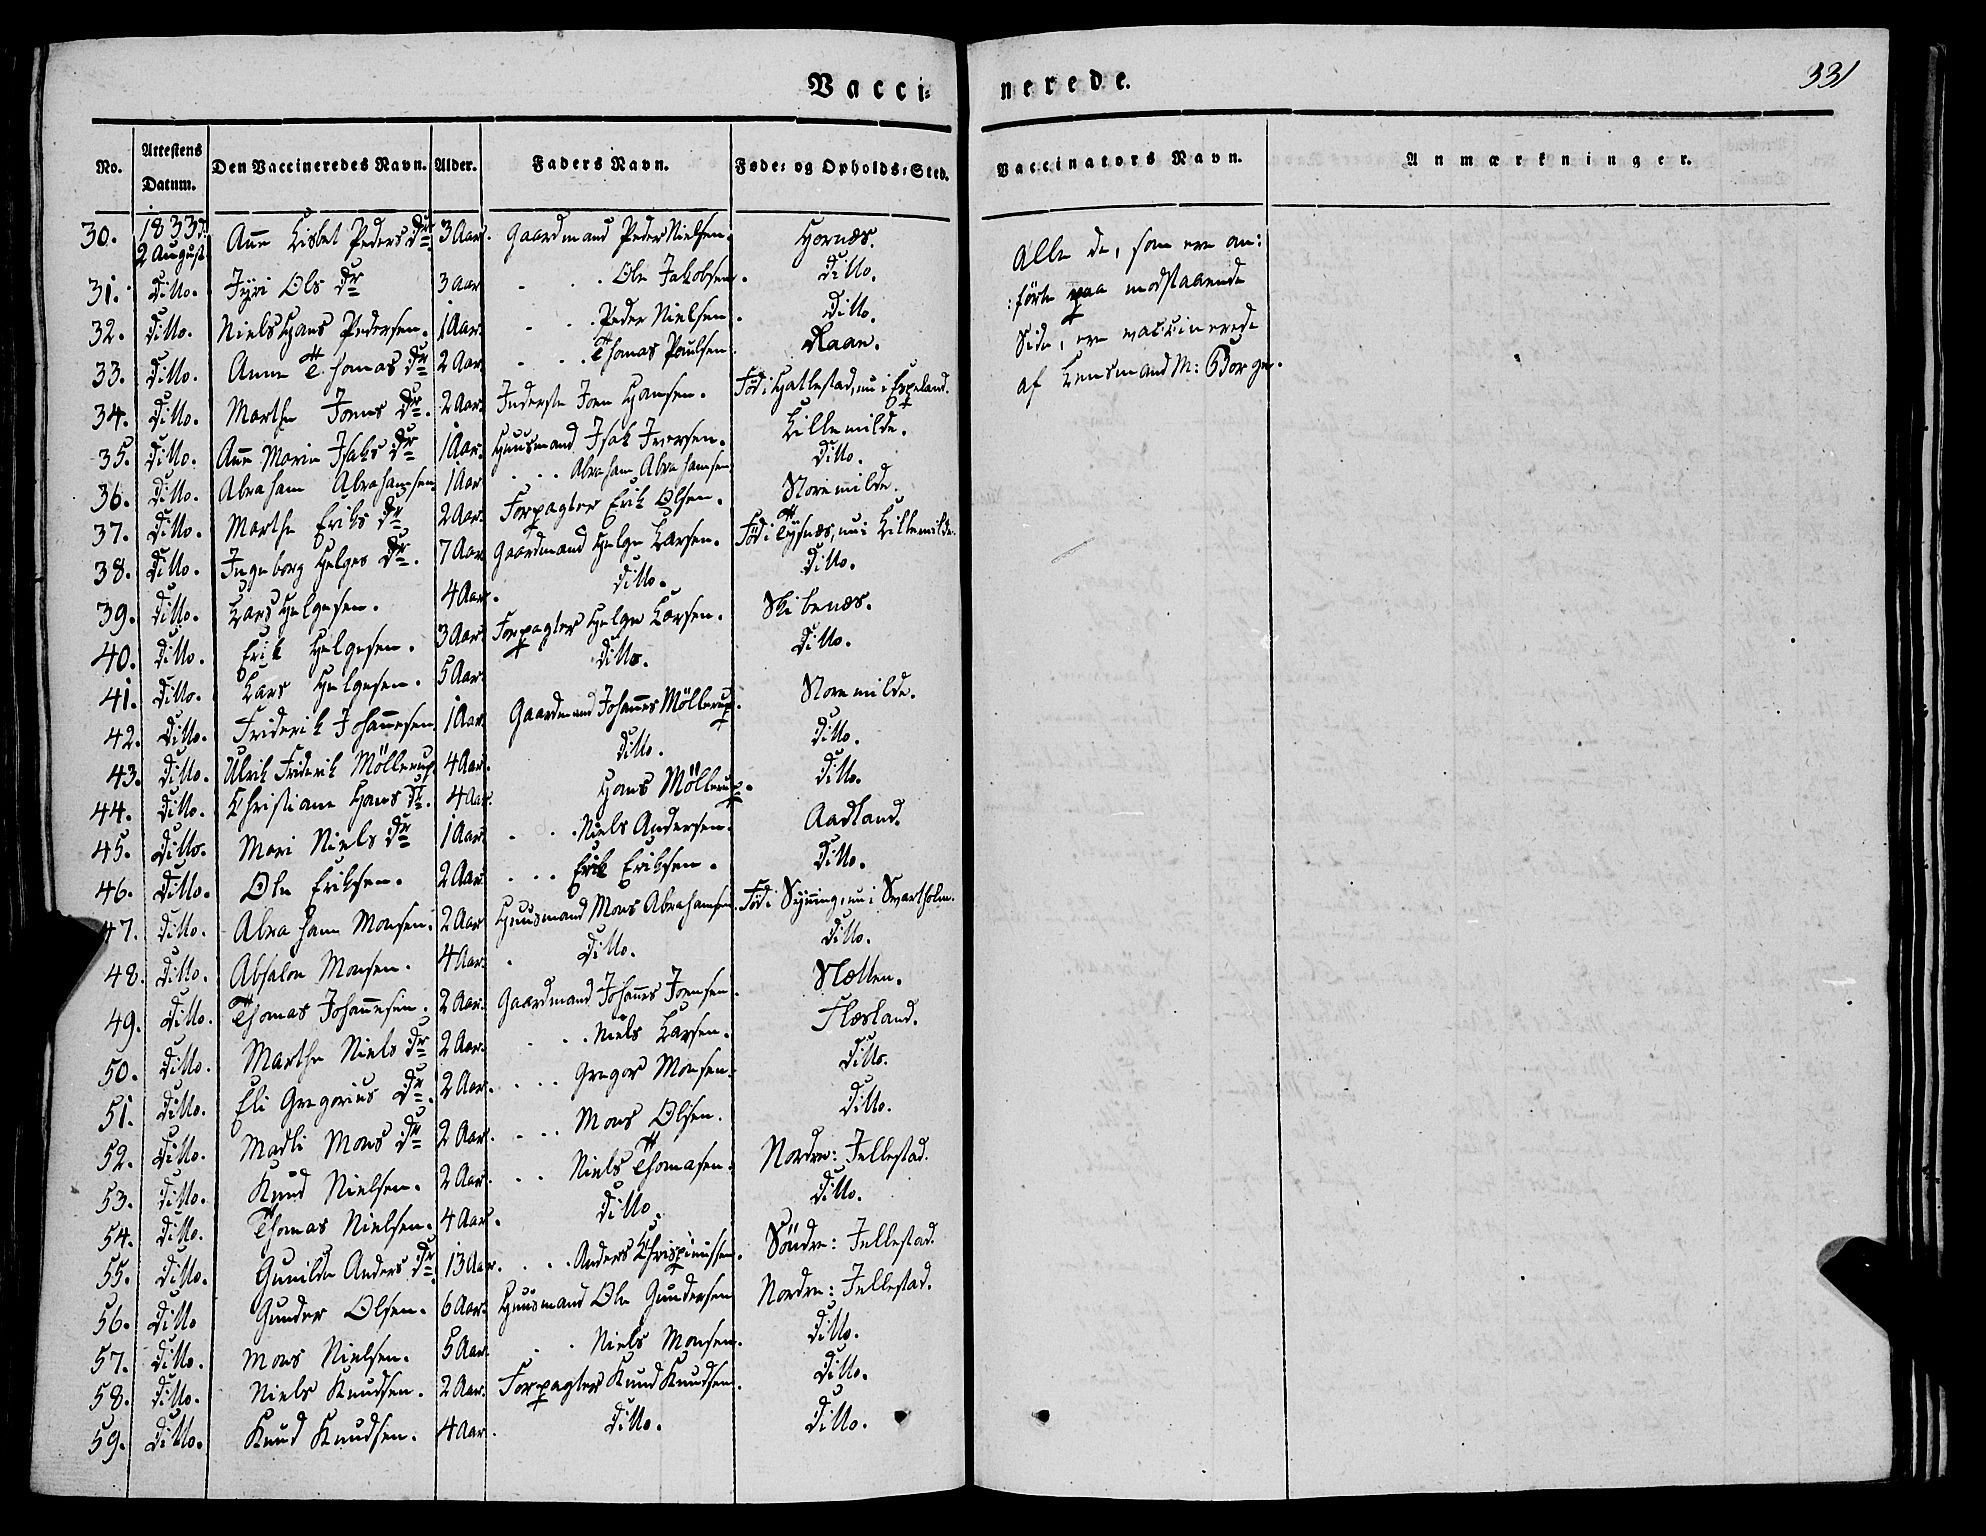 Vacci- nerede. 331
No. Attestens Datum. Den Vaccineredes Navn. Alder. Faders Navn. Føde- og Opholds-Sted. Vaccinators Navn. Anmærkninger.
30. 1833 2 August. Ane Lisbet Peders Dr 3 Aar. Gaardmand Peder Nielsen. Hornæs.
31. Ditto. Jyri Ols Dr 3 Aar . . Ole Jakobsen. Ditto.
32. Ditto. Niels Hans Pedersen. 1 Aar. . . Peder Nielsen. Ditto.
33. Ditto. Anne Thomas Dr 2 Aar . . Thomas Poulsen. Raan.
34. Ditto. Marthe Joens Dr. 2 Aar. Inderste Joen Hansen. Föd i Hatlestad, nu i Espeland.
35. Ditto. Ane Marie Isaks Dr 1 Aar. Huusmand Isak Iversen. Lillemilde.
36. Ditto. Abraham Abrahamsen. 1 Aar . . . Abraham Abrahamsen. Ditto.
37. Ditto. Marthe Eriks Dr 2 Aar. Forpagter Erik Olsen. Storemilde.
38. Ditto. Ingeborg Helges Dr. 7 Aar Gaardmand Helge Larsen. Föd i Tysnæs, nu i Lillemilde.
39. Ditto. Lars Helgesen. 4 Aar. Ditto. Ditto.
40. Ditto. Erik Helgesen. 3 Aar. Forpagter Helge Larsen. Skibenæs.
41. Ditto. Lars Helgesen. 5 Aar. Ditto. Ditto.
42. Ditto. Friderik Johannesen 1 Aar. Gaardmand Johannes Möllerup. Storemilde.
43. Ditto. Ulrik Friderik Möllerup 4 Aar. Ditto. Ditto.
44. Ditto. Christiane Hans Dr. 4 Aar. Hans Möllerup. Ditto.
45. Ditto. Mari Niels Dr 1 Aar . . Niels Andersen. Aadland.
46. Ditto. Ole Eriksen. 2 Aar . . . Erik Eriksen. Ditto.
47. Ditto. Abraham Monsen. 2 Aar Huusmand Mons Abrahamsen. Föd i , nu i Svartholm.
48. Ditto. Absalon Monsen. 4 Aar. . Ditto. Ditto.
49. Ditto. Thomas Johannesen. 2 Aar. Gaardmand Johannes Joensen. Slætten.
50. Ditto. Marthe Niels Dr 2 Aar. . . . Niels Larsen. Flæsland.
51. Ditto. Eli Gregorius Dr. 2 Aar. . . . Gregors Monsen. Ditto.
52. Ditto. Madli Mons Dr 2 Aar. . . . Mons Olsen. Ditto.
53. Ditto. Knud Nielsen. 2 Aar. . . Niels Thomasen. Nordre: Jellestad.
54. Ditto. Thomas Nielsen. 4 Aar. Ditto. Ditto.
55. Ditto. Gunilde Anders Dr. 13 Aar. . . . Anders Chrispinussen. Söndre: Jellestad.
56. Ditto Gunder Olsen. 6 Aar. Huusmand Ole Gundersen Nordre: Jellestad.
57. Ditto. Mons Nielsen. 5 Aar. . . Niels Monsen. Ditto.
58. Ditto. Niels Knudsen. 2 Aar. Forpagter Knud Knudsen. Ditto.
59. Ditto. Knud Knudsen. 4 Aar. Ditto. Ditto.
Alle de, som ere an:
:förte paa modstaaende
Side, ere vaccinerede
af Lensmand M: Borge.